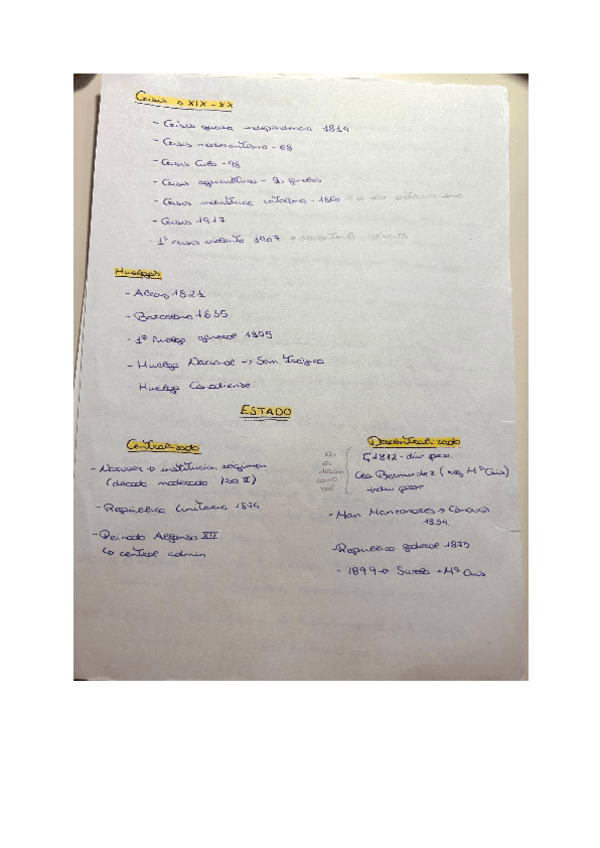 Crisis s XIX - XX
- Crisis guerra independencia 1814
- Crisis - 68
- Crisis Cuba - 98
- Crisis agricultura -
- Crisis industria catalana - 1860
- Crisis 1917
- 1ª crisis violenta 1907
Huelgas
- Alcoy 1821
- Barcelona 1835
- 1ª huelga general 1855
- Huelga Nacional → Son
Huelga Canadiense
ESTADO
Centralizado
- Narvaez → institucion. régimen
(decada moderada Isa II)
- República Unitaria 1874
- Reinado Alfonso XII
↳ central admin
Descentralizado
No es
1812 - div prov.
Cea Bermudez (reg Mª Cris)
- Man Manzanares → Cánovas
1854
- Republica federal 1873
- 1899 → + Mª Cris